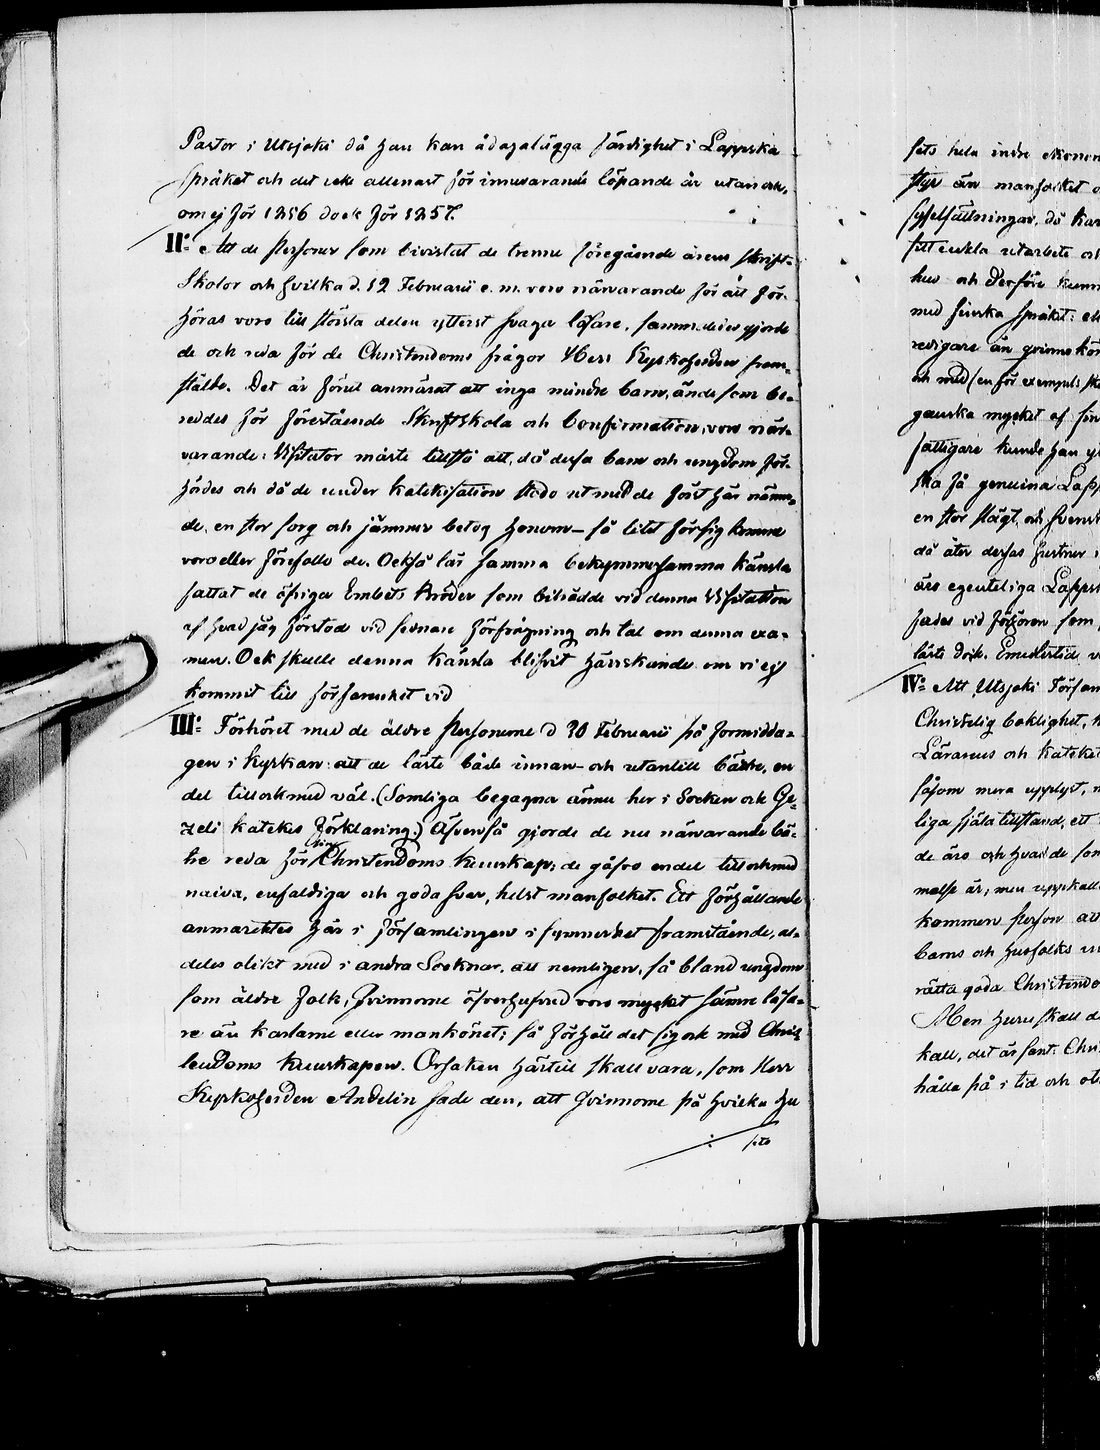 Pastor i Utsjoki då han kan ådagalägga färdighet i Lappska
språket och det icke allenast för innevarande löpande år utan och,
om ej för 1856 dock för 1857.
II: Att de Personer som bivistat de trenne föregående årens skrift-
Skolor och hvilka d. 12 Februarii e. m. voro närvarande för att för-
höras voro till största delen ytterst svaga läsare, samma deles gjorde
de och reda för de Christendoms frågor Herr Kyrkoherden fram-
stälde. Det är förut anmärkt att inga mindre barn, ände som be-
reddes för förestående Skriftskola och Confirmation, voro när-
varande: Visitator måste tillstå att, då dessa barn och ungdom för-
hördes och då de under katekisation stodo ut med de först här nämn-
de, en stor sorg och jämmer betog honom – så litet försigkomne
voro eller föreföllo de. Också lär samma bekymmersamma känsla
fattat de öfriga Embets Bröder som biträdde vid denna Visitation
af hvad jag förstod vid sednare förfrågning och tal om denna exa-
men. Ock skulle denna känsla blifvit härrskande om vi ej
kommit till församlet vid
III: Förhöret med de äldre Personerne d 20 Februarii på förmidda-
gen i Kyrkan: att de läste både innan- och utantill bättre, en
del till och med väl. (Somliga begagna ännu her i Socken och Ge-
zeli katekes förklaring.) Äfvenså gjorde de nu närvarande bä-
tre reda för sin Christendoms kunskap; de gåfvo endel till och med
naiva, enfaldiga och goda svar, helst manfolket. Ett förhållande
anmärktes här i församlingen i synnerhet framstående, al-
deles olikt med i andra Socknar, att nemligen, så bland ungdom
som äldre folk, Qvinnorne öfverhufvud voro mycket sämre läsa-
re än karlarne eller mankönet; så förhöll det sig ock med Chris
tendoms kunskapen. Orsaken härtill skall vara, som Herr
Kyrkoherden Andelin sade den, att Qvinnorne på hvilka hu
sets
sets hela indre ekonom
styr än manfolket o
sysselsättningar, då kar
sitt enkla utarbete och
hus och derföre kunn
med finska språket: ell
redigare än qvinnokön
och med (en för exempel
ganska mycket af fin
fattigare kunde han
ska få genuina Lapp
en stor slägt, och svensk
då åter dessas hustrur
äro egenteliga Lappsk
hördes vid förhören som
läste dock. Emedlertid
IV: Att Utsjoki Försam
Christelig boklighet,
Lärarens och kateket
såsom mera upplyst,
liga själatillstånd, ett
de äro och hvad de
melse är; men uppkall
kommen person att
barns och husfolks
rätta goda Christendo
Men huru skall d
kall, det är sant: Chri
hålla på i tid och ot